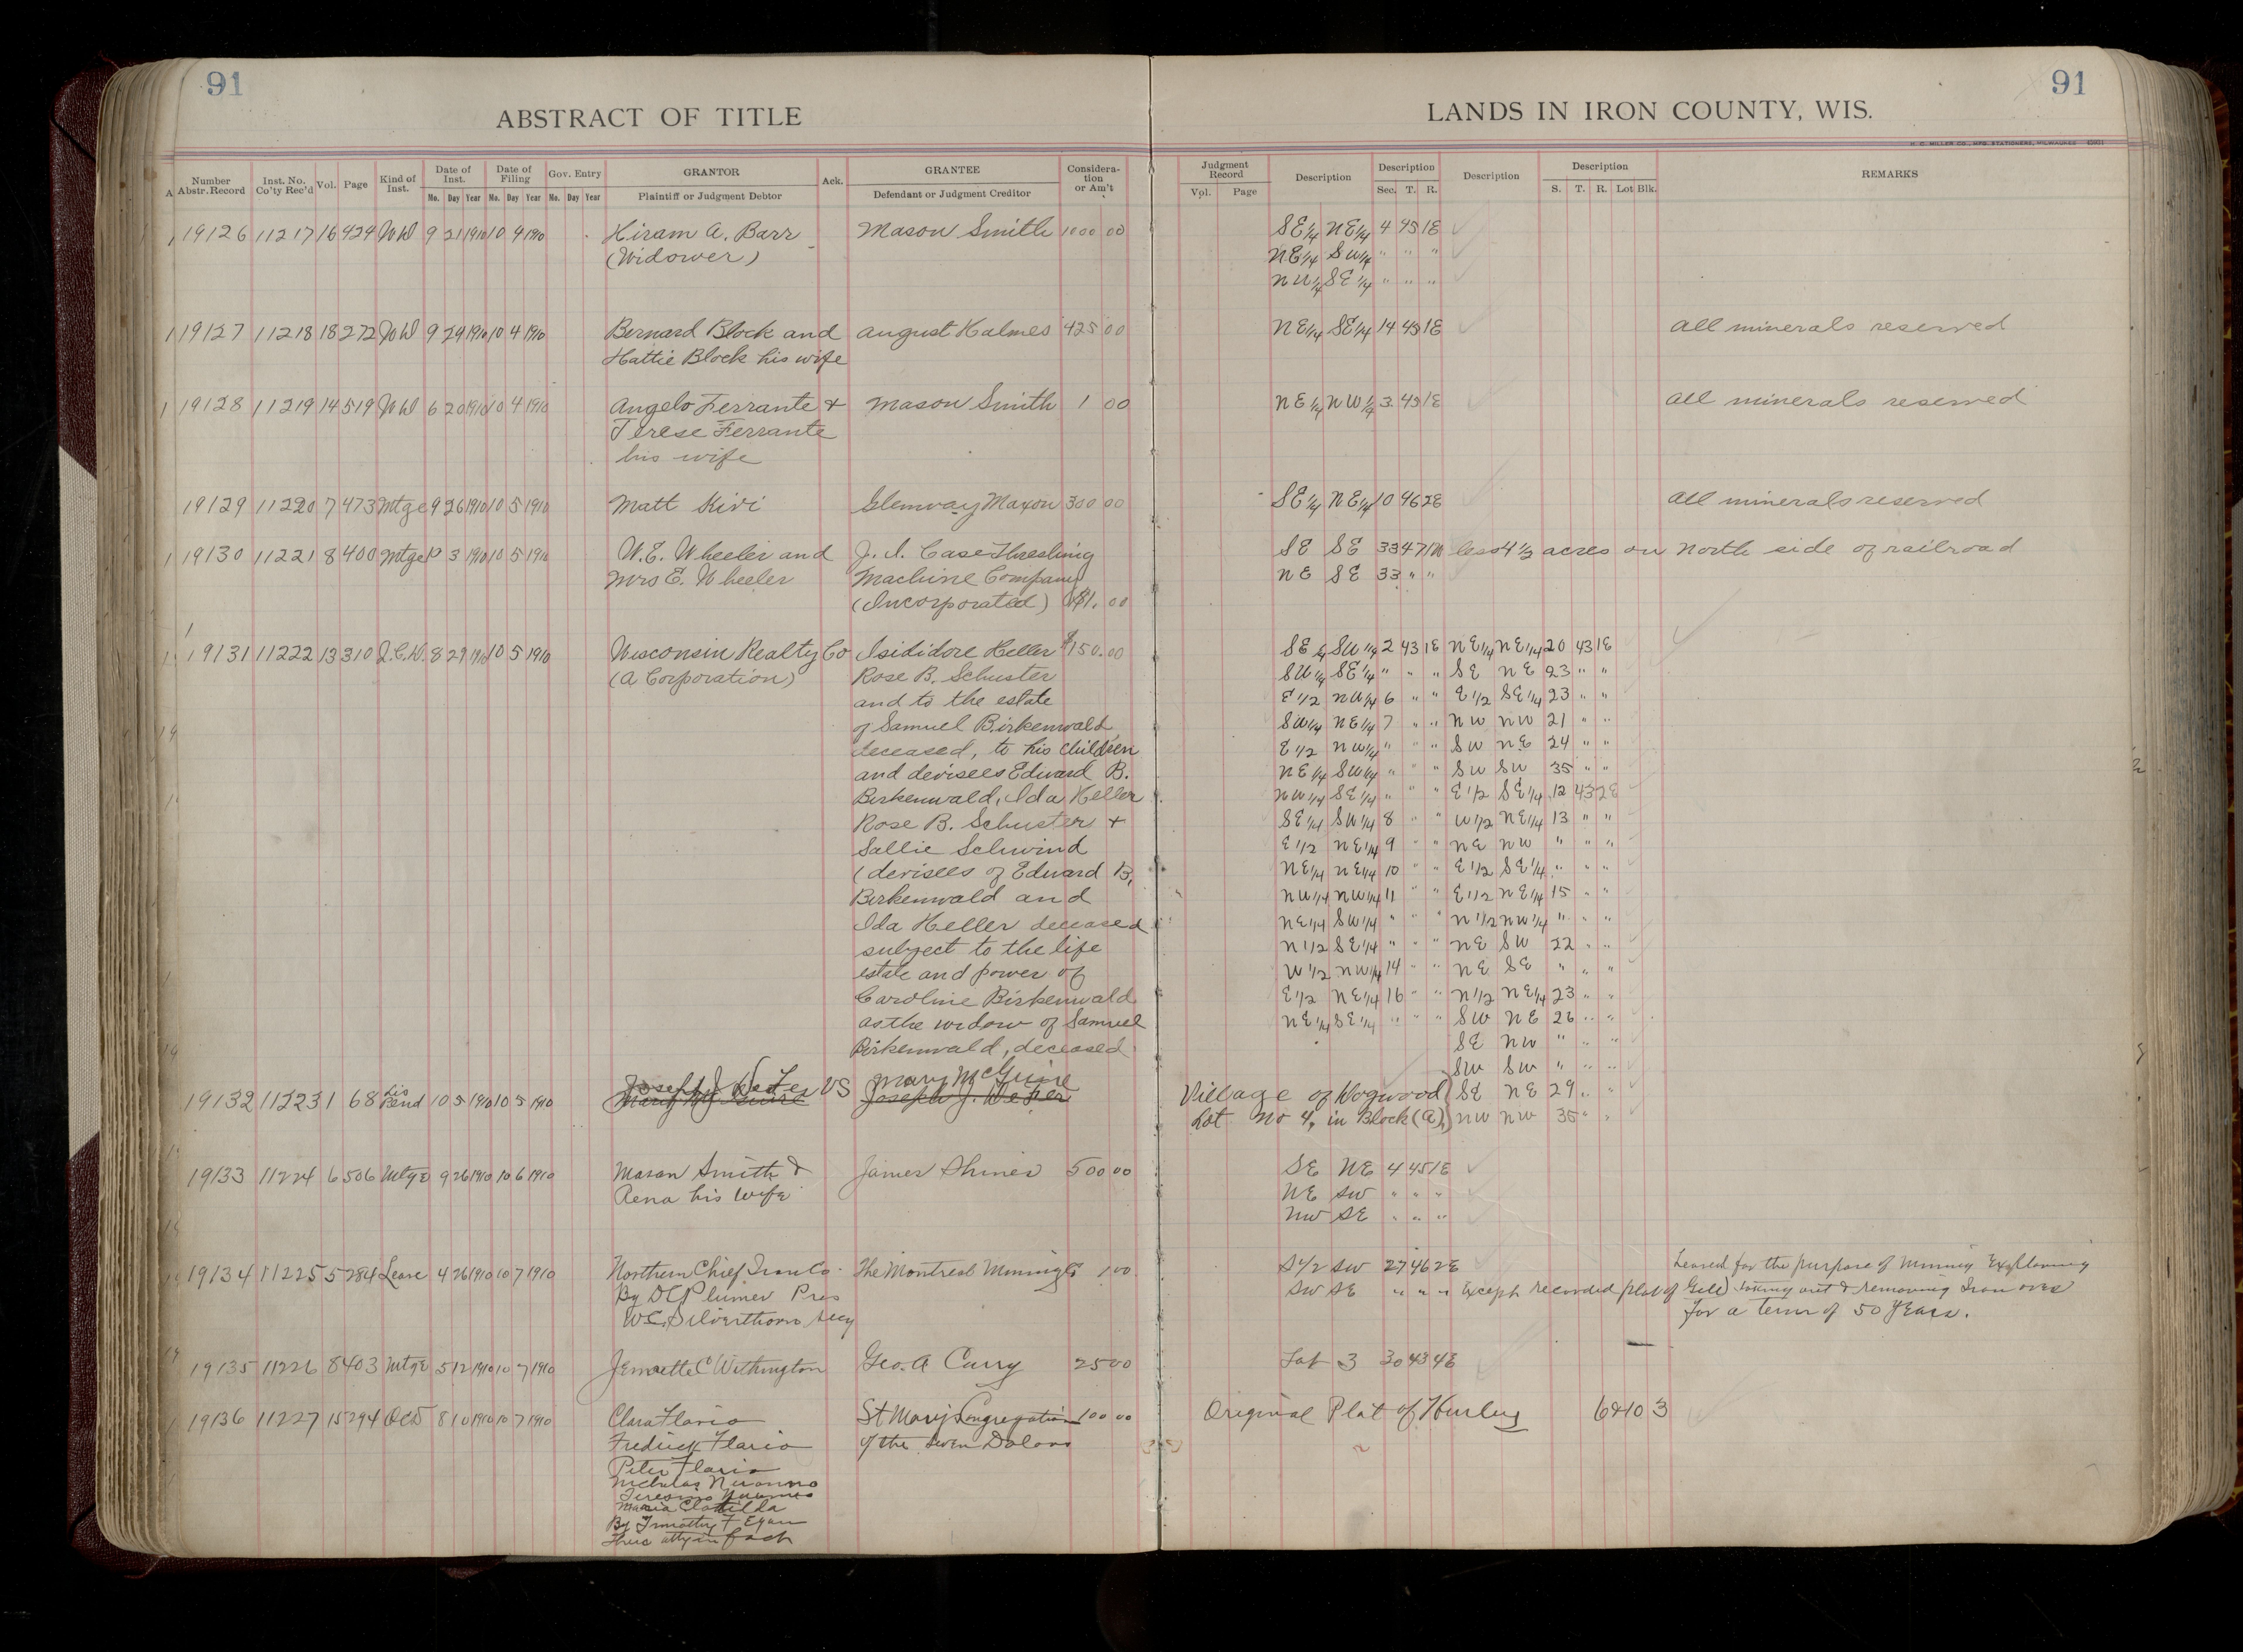 91
91
ABSTRACT OF TITLE
LANDS IN IRON COUNTY, WIS.
H. C. MILLER CO., MFG. STATIONERS, MILWAUKEE
A Number Abstr. Record Inst. No. Co'ty Rec'd Vol. Page Kind of Inst. Date of Inst. Mo. Day Year Date of Filing Mo. Day Year Gov. Entry Mo. Day Year GRANTOR Plaintiff or Judgment Debtor Ack. GRANTEE Defendant or Judgment Creditor Considera-tion or Am't
Judgment Record Vol. Page Description Description Sec. T. R. Description Description S. T. R. Lot Blk. REMARKS
19126 11217 16 424 WD 9 21 1910 10 4 1910 Hiram A. Barr Mason Smith 1000 00 SE1/4 NE1/4 4 45 1E
(Widower) NE1/4 SW1/4 " " "
NW1/4 SE1/4 " " "
19127 11218 18 272 WD 9 29 1910 10 4 1910 Bernard Block and August Halmes 425 00 NE1/4 SE1/4 14 45 1E All minerals reserved
Hattie Block his wife
19128 11219 14 519 WD 6 20 1910 10 4 1910 Angelo Ferrante & Mason Smith 1 00 NE1/4 NW1/4 3 45 1E All minerals reserved
Terese Ferrante
his wife
19129 11220 7 473 Mtge 9 26 1910 10 5 1910 Matt Kivi Glenway Maxon 300 00 SE1/4 NE1/4 10 46 2E All minerals reserved
19130 11221 8 400 Mtge 10 3 1910 10 5 1910 W. E. Wheeler and J. I. Case Threshing SE SE 33 47 1 less 4 1/2 acres on North side of railroad
Mrs E. Wheeler Machine Company NE SE 33 " "
(Incorporated) $1.00
19131 11222 13 310 Q.C.D. 8 29 1910 10 5 1910 Wisconsin Realty Co Isididore Heller $150.00 SE1/4 SW1/4 2 43 1E NE1/4 NE1/4 20 43 1E
(A Corporation) Rose B. Schuster SW1/4 SE1/4 " " " SE NE 23 " "
and to the estate E1/2 NW1/4 6 " " E1/2 SE1/4 23 " "
of Samuel Birkenwald, SW1/4 NE1/4 7 " " NW NW 21 " "
deceased, to his children E1/2 NW1/4 " " " SW NE 24 " "
and devisees Edward B. NE1/4 SW1/4 " " " SW SW 35 " "
Birkenwald, Ida Heller NW1/4 SE1/4 " " " E1/2 SE1/4 12 43 2E
Rose B. Schuster + SE1/4 SW1/4 8 " " W1/2 NE1/4 13 " "
Sallie Schwind E1/2 NE1/4 9 " " NE NW " " "
(devisees of Edward B. NE1/4 NE1/4 10 " " E1/2 SE1/4 " " "
Birkenwald and NW1/4 NW1/4 11 " " E1/2 NE1/4 15 " "
Ida Heller deceased NE1/4 SW1/4 " " " N1/2 NW1/4 " " "
subject to the life N1/2 SE1/4 " " " NE SW 22 " "
estate and power of W1/2 NW1/4 14 " " NE SE " " "
Caroline Birkenwald E1/2 NE1/4 16 " " N1/2 NE1/4 23 " "
as the widow of Samuel NE1/4 SE1/4 " " " SW NE 26 " "
Birkenwald, deceased SE NW " " "
SW SW " " "
19132 11223 1 68 Lis Pend 10 5 1910 10 5 1910 Joseph J. VS Mary McGuire Village of SE NE 29 " "
Mary McGuire Joseph J. Lot No 4, in Block (A) NW NW 35 " "
19133 11224 6 506 Mtge 9 26 1910 10 6 1910 Mason Smith & James Shiner 500 00 SE NE 4 45 1E
Rena his wife NE SW " " "
NW SE " " "
19134 11225 5 284 Lease 4 26 1910 10 7 1910 Northern Chief Iron Co The Montreal Mining Co 1 00 S1/2 SW 27 46 2E Leased for the purpose of Mining Exploring
By D C Plumer Pres SW SE " " " Except recorded plat of Gile) taking out & removing Iron ores
W.C. Silverthorn Secy for a term of 50 years.
19135 11226 8 403 Mtge 5 12 1910 10 7 1910 Jennette C Withington Geo. A Curry 25 00 Lot 3 30 43 4E
19136 11227 15 294 QCD 8 10 1910 10 7 1910 Clara Flario St Mary's Congregation 100 00 Original Plat of Hurley 3
Fredrick Flario of the Seven Dolors
Peter Flario
Nicholas
Maria Clotilda
By Timothy F Egan
Their atty in fact